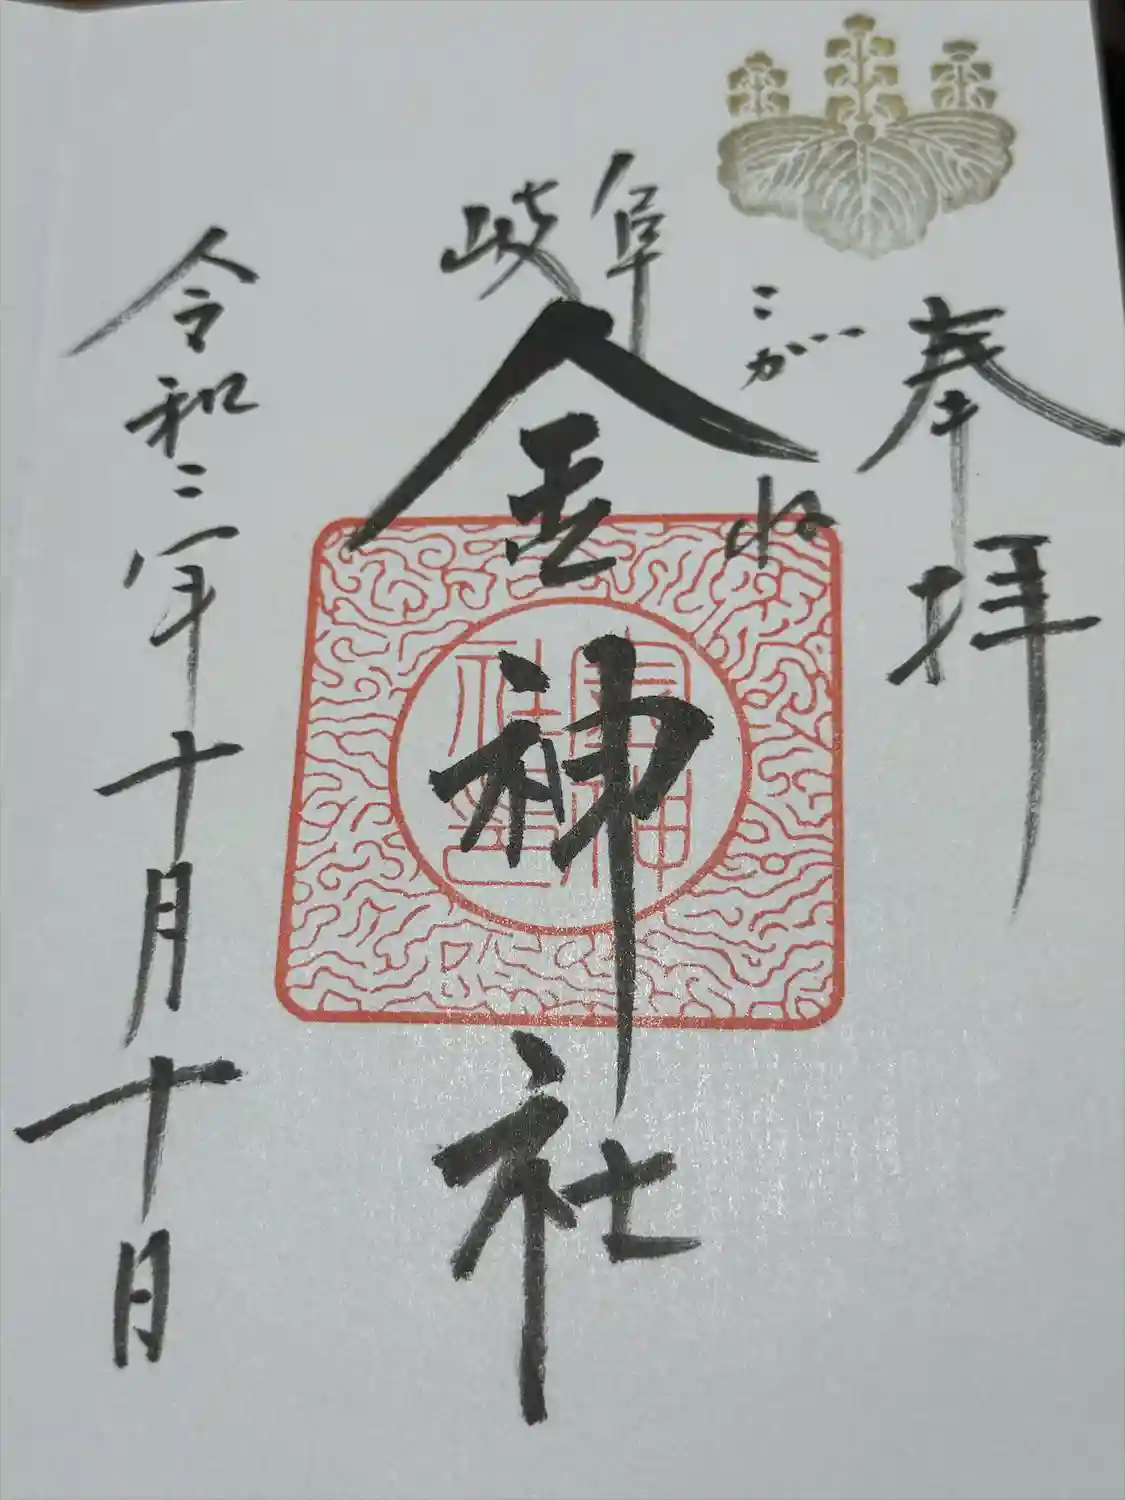 奉拝
こがね
岐阜
金神社
令和二年十月十日